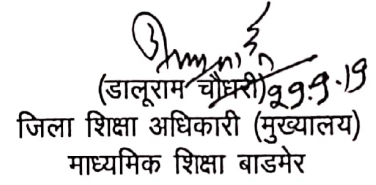 (डालूराम चौधरी) 29.9.19
जिला शिक्षा अधिकारी (मुख्यालय)
माध्यमिक शिक्षा बाडमेर